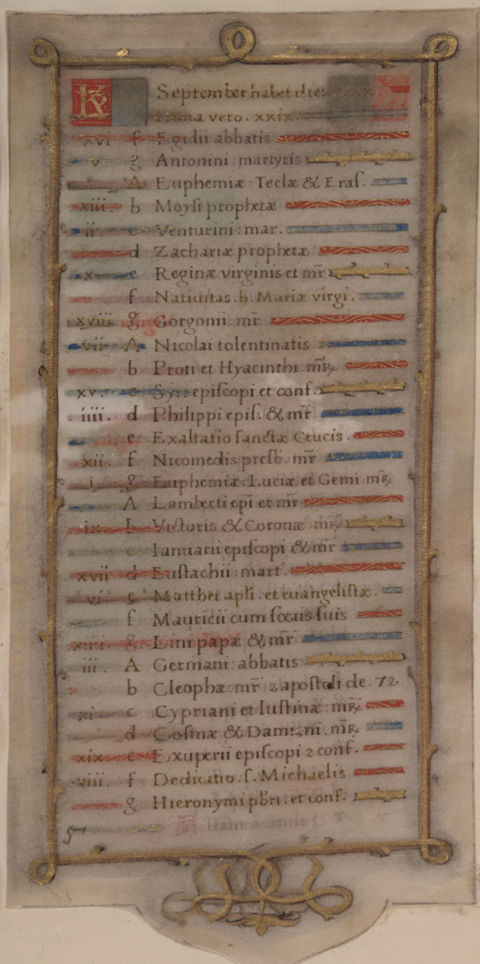 KL September habet dies xxx
Luna vero. xxix
xvi f Egidii abbatis
v g Antonini martyris
A Euphemiæ Teclæ & Eras.
xiii. b Moysi prophetæ
ii c Venturini mar.
d Zachariæ prophetæ
x e Reginæ virginis et mr̄
f Natiuitas. b. Mariæ virgi.
xviii g Gorgonii mr̄
vii A Nicolai tolentinatis
b Proti et Hyacinthi mr̄
xv. c Syri episcopi et conf.
iiii. d Philippi epis. & mr̄
e Exaltatio sanctæ Crucis
xii f Nicomedis presb. mr̄
i g Euphemiæ Luciæ et Gemi mr̄
A Lamberti ep̄i et mr̄
ix b Victoris & Coronæ mr̄
c Ianuarii episcopi & mr̄
xvii d Eustachii mart.
vi c Matthei apli. et euangelistæ.
f Mauricii cum sociis suis
xiiii g Lini papæ & mr̄
iii. A Germani abbatis
b Cleophæ mr̄ 2 apostoli de. 72.
xi c Cypriani et Iustinæ mr̄
d Cosmæ & Damiani mr̄
xix e Exuperii episcopi 2 conf.
viii. f Dedicatio. s. Michaelis
g Hieronymi pb̄ri. et conf.
5